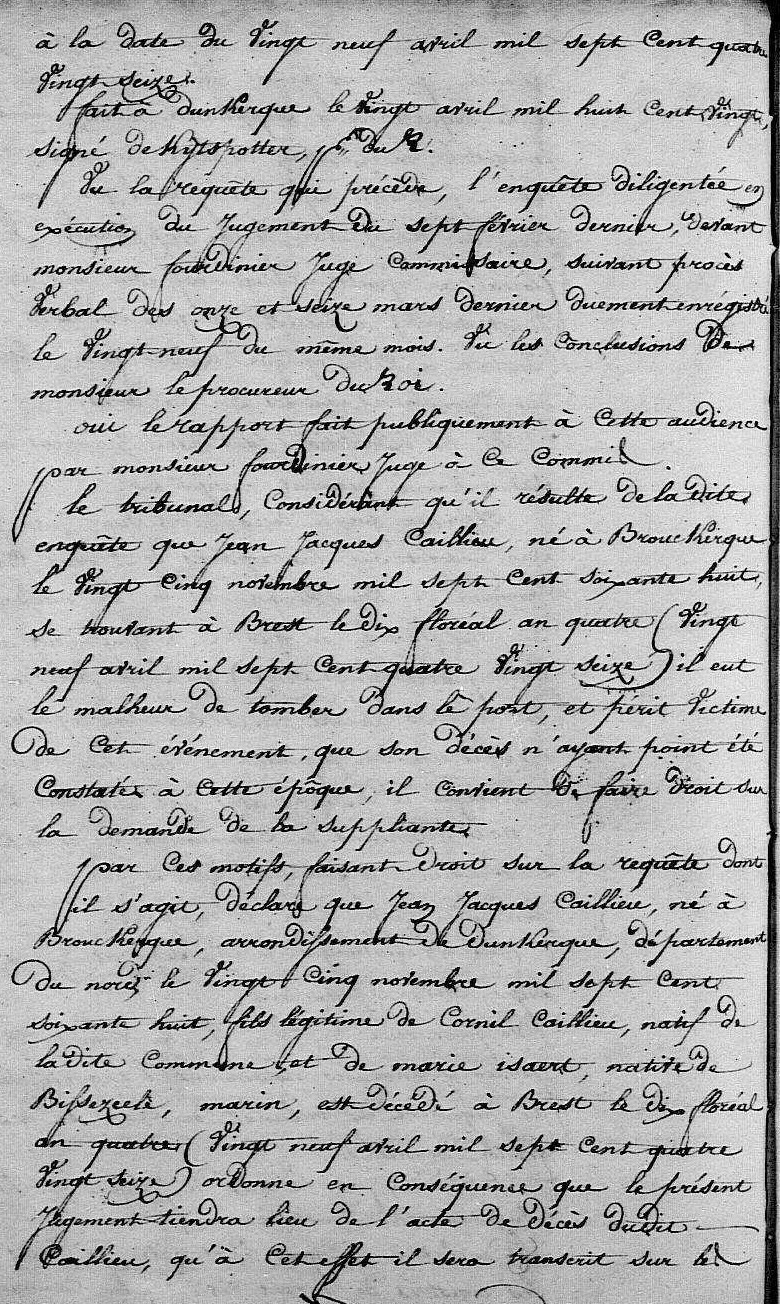 à la date du vingt neuf avril mil sept cent quatre
vingt seize.
fait à dunkerque le vingt avril mil huit cent vingt,
signé deKytspotter, pr. du R.
Vu la requête qui précède, l'enquête diligentée en
exécution du Jugement du sept février dernier, devant
monsieur fourdinier Juge Commissaire, suivant procès
Verbal des onze et seize mars dernier duement enrégistré
le vingt neuf du même mois. Vu les Conclusions de
monsieur le procureur du Roi.
oui le rapport fait publiquement à cette audience
par monsieur fourdinier Juge à ce Commis.
le tribunal, Considérant qu'il résulte de la dite
enquête que Jean Jacques Caillieu, né à Brouckerque
le vingt cinq novembre mil sept cent soixante huit,
se trouvant à Brest le dix floréal an quatre (vingt
neuf avril mil sept cent quatre vingt seize) il eut
le malheur de tomber dans le port, et périt victime
de cet événement, que son décès n'ayant point été
Constaté à cette épôque, il convient de faire droit sur
la demande de la suppliante.
par ces motifs, faisant droit sur la requête dont
il s'agit, déclare que Jean Jacques Caillieu, né à
Brouckerque, arrondissement de Dunkerque, département
du nord, le vingt cinq novembre mil sept cent
soixante huit, fils légitime de Cornil Caillieu, natif de
la dite Commune, et de marie isaert, native de
Bissezeele, marin, est décédé à Brest le dix floréal
an quatre (vingt neuf avril mil sept cent quatre
vingt seize) ordonne en conséquence que le présent
Jugement tiendra lieu de l'acte de décès dudit
Caillieu, qu'à cet effet il sera transcrit sur les